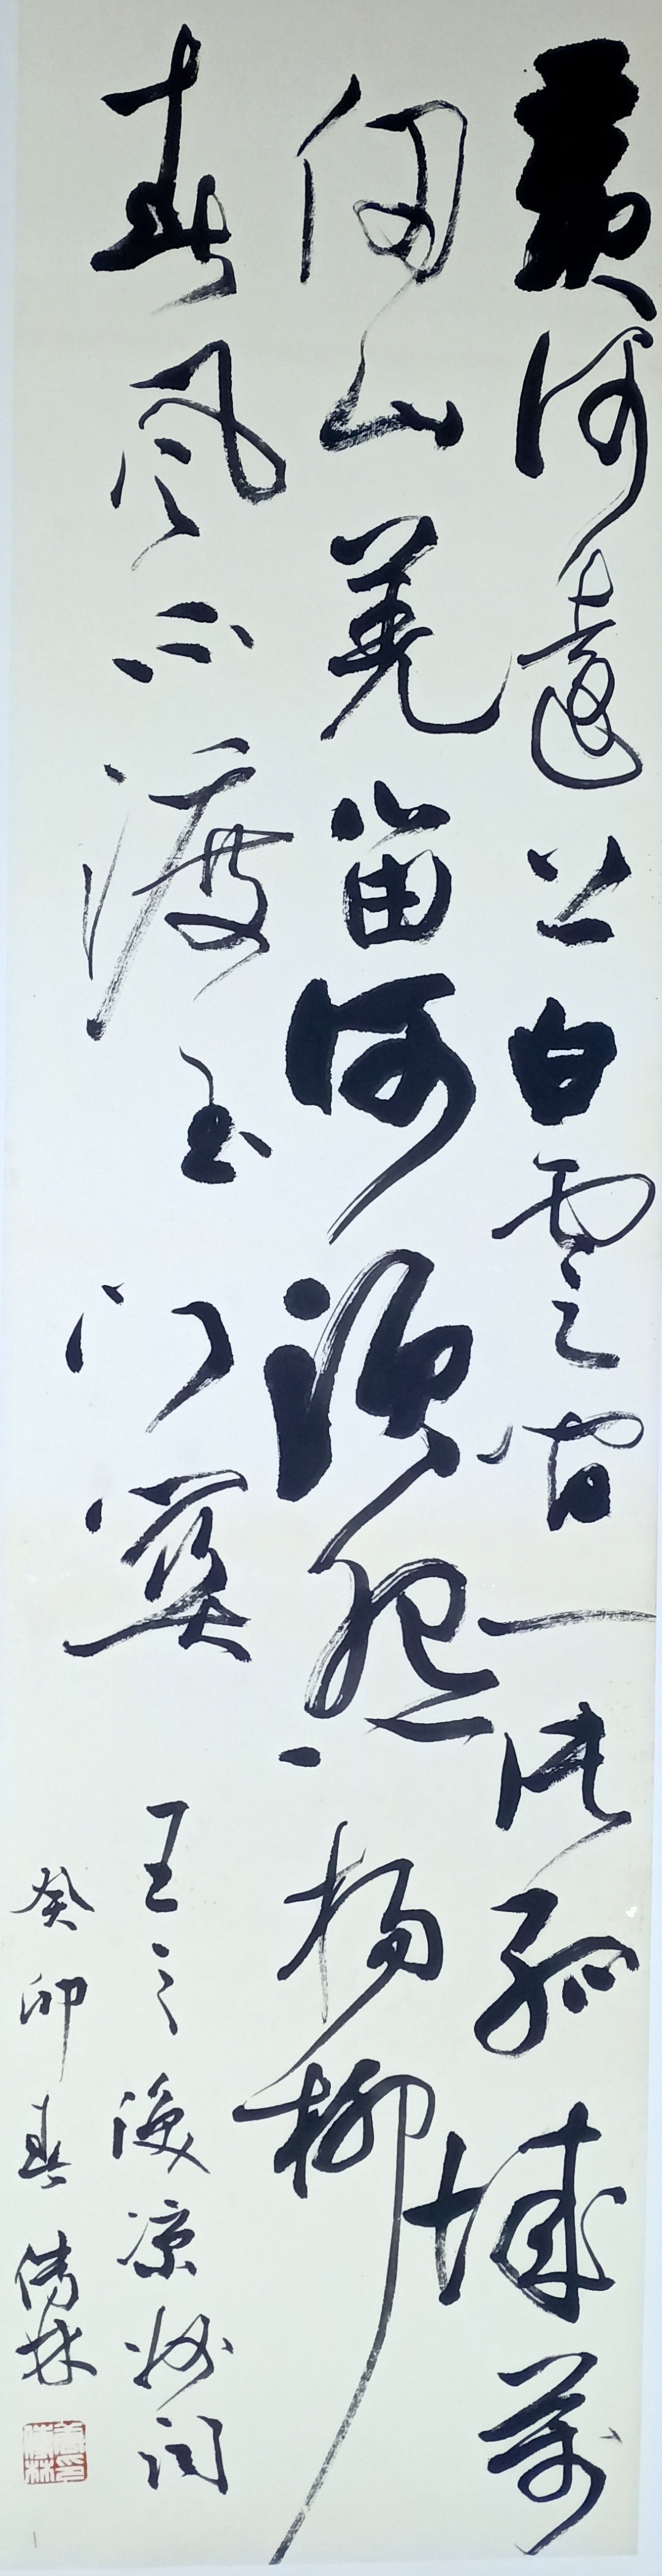 黄河遠上白雲间一片孤城萬
仞山羌笛何須怨杨柳
春风不渡玉门關
王之涣凉州词
癸卯春傅林